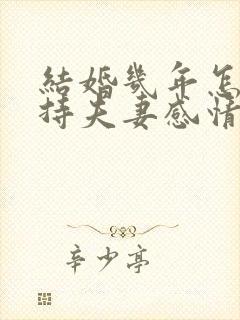 結婚幾年怎
持夫妻感情
辛少亭